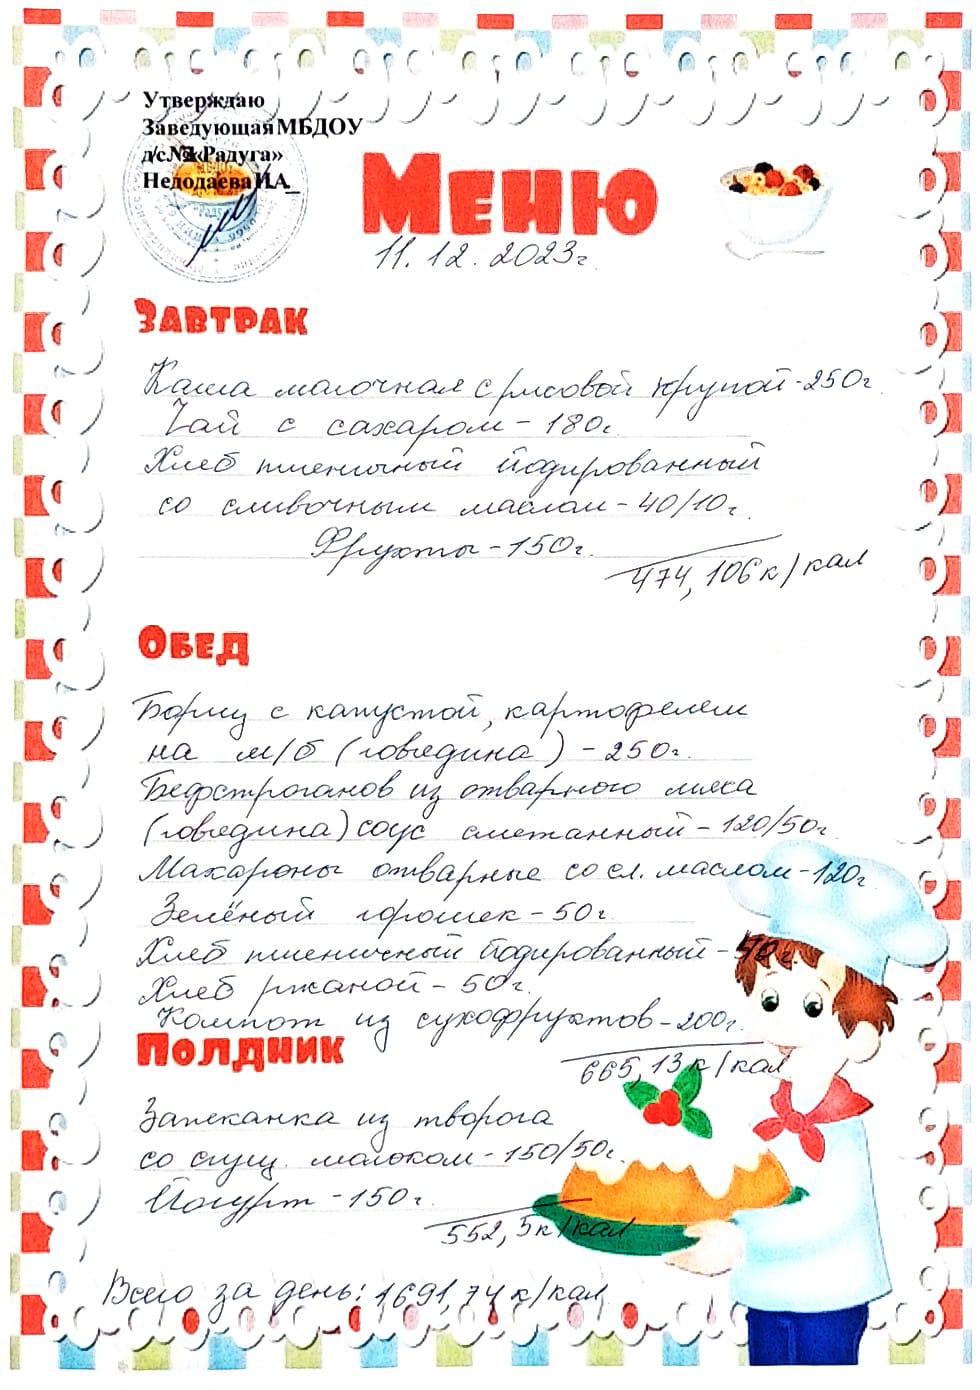 Утверждаю
Заведующая МБДОУ
д/с№2 «Радуга»
Недодаева И.А_
Меню
11.12.2023г.
Завтрак
Каша молочная с рисовой крупой - 250г
Чай с сахаром - 180г.
Хлеб пшеничный йодированный
со сливочным маслом - 40/10г.
Фрукты - 150г.
474,106 к/кал
Обед
Борщ с капустой, картофелем
на м/б (говядина) - 250г.
Бефстроганов из отварного мяса
(говядина) соус сметанный - 120/50г.
Макароны отварные со сл. маслом - 120г
Зелёный горошек - 50г.
Хлеб пшеничный йодированный - 40г.
Хлеб ржаной - 50г.
Компот из сухофруктов - 200г.
665,13 к/кал
Полдник
Запеканка из творога
со сгущ. молоком - 150/50г.
Йогурт - 150г.
552,5 к/кал
Всего за день: 1691,74 к/кал